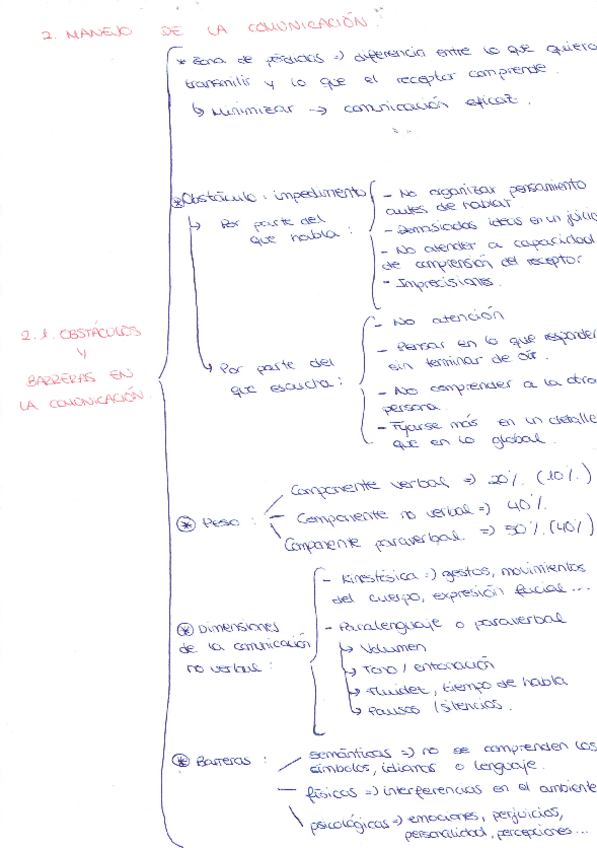 2. MANEJO DE LA COMUNICACIÓN.
* Zona de pérdidas => diferencia entre lo que quiero
transmitir y lo que el receptor comprende.
↳ Minimizar → comunicación eficaz.
* Obstáculo: impedimento
↳ Por parte del
que habla:
- No organizar pensamiento
antes de hablar
- Demasiadas ideas en un juicio
- No atender a capacidad
de comprensión del receptor
- Imprecisiones.
2.1. OBSTÁCULOS
Y
BARRERAS EN
LA COMUNICACIÓN.
↳ Por parte del
que escucha:
- No atención
- Pensar en lo que responder
sin terminar de oír.
- No comprender a la otra
persona.
- Fijarse más en un detalle
que en lo global.
* Peso:
Componente verbal => 20%. (10%.)
Componente no verbal => 40%.
Componente paraverbal. => 50%. (40%)
* Dimensiones
de la comunicación
no verbal:
- Kinestésica => gestos, movimientos
del cuerpo, expresión facial...
- Paralenguaje o paraverbal
↳ Volumen
↳ Tono / entonación
↳ Fluidez, tiempo de habla
↳ Pausas / silencios.
* Barreras:
semánticas => no se comprenden los
símbolos, idiomas o lenguaje.
físicas => interferencias en el ambiente
psicológicas => emociones, perjuicios,
personalidad, percepciones...